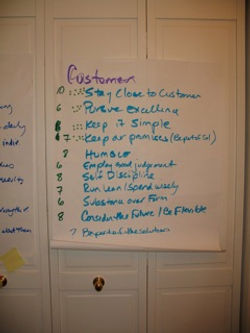 Customer
10 Stay Close to Customer
6 Pursue Excellence
8 Keep it Simple
7 Keep our promises
8 Humble
6 Employ good judgement
8 Self Discipline
7 Run Lean / Spend wisely
6 Substance over Form
8 Consider the Future / Be Flexible
7 Be part of the solution
daily